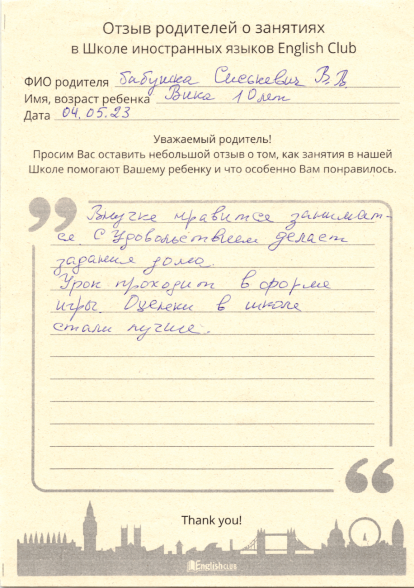 Отзыв родителей о занятиях
в Школе иностранных языков English Club
ФИО родителя бабушка Сиськевич В.В.
Имя, возраст ребенка Вика 10 лет
Дата 04.05.23
Уважаемый родитель!
Просим Вас оставить небольшой отзыв о том, как занятия в нашей
Школе помогают Вашему ребенку и что особенно Вам понравилось.
Внучке нравится занимат-
ся. С удовольствием делает
задания дома.
Урок проходит в форме
игры. Оценки в школе
стали лучше.
Thank you!
English CLUB